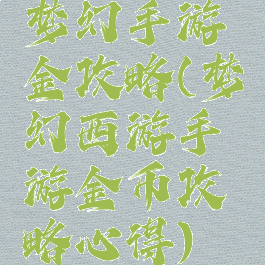 梦幻手游
金攻略(梦
幻西游手
游金币攻
略心得)